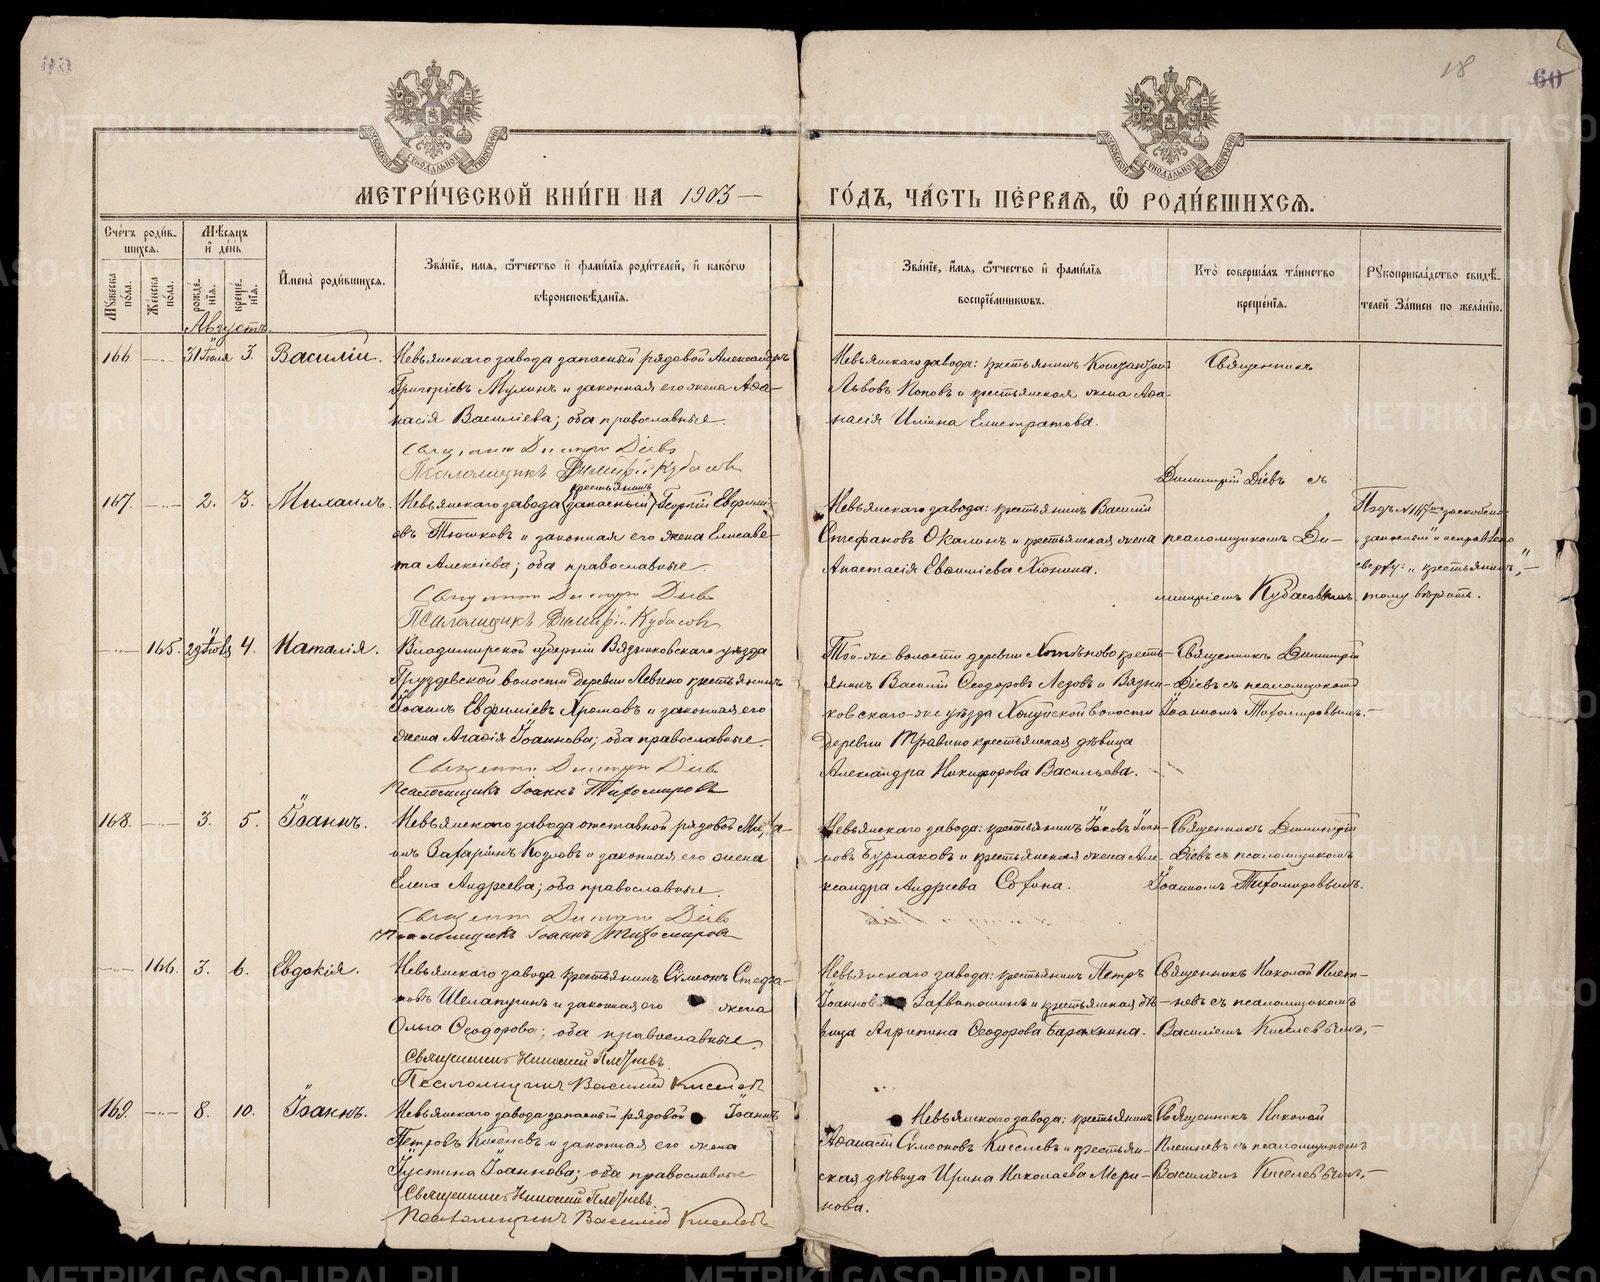 18
60
МЕТРИ́ЧЕСКОЙ КНИ́ГИ НА 1903 —
ГО́ДЪ, ЧА́СТЬ ПЕ́РВАЯ, Ѡ҆ РОДИ́ВШИХСЯ.
Сче́тъ роди́в-
шихся.
Мꙋ́жеска по́ла.
Же́нска по́ла.
Мѣ́сяцъ
и҆ де́нь
рожде́-нїя.
креще́-нїя.
И҆мена̀ роди́вшихся.
Зва́нїе, и҆мя, ѻ҆́тчество и҆ фами́лїя роди́телей, и҆ како́гѡ
вѣроисповѣ́данїя.
Зва́нїе, и҆́мя, ѻ҆́тчество и҆ фами́лїя
воспрїе́мниковъ.
Кто̀ соверша́лъ та́инство
креще́нїя.
Рꙋкоприкла́дство свидѣ́-
телей За́писи по жела́нїю.
Августъ.
166 31 Іюля 3. Василій.
Невьянскаго завода запасный рядовой Александръ
Григоріевъ Мухинъ и законная его жена Аѳа-
насія Василіева; оба православные.
Священникъ Димитрій Діевъ
Псаломщикъ Димитрій Кубасовъ
Невьянскаго завода: крестьянинъ Константинъ
Львовъ Поповъ и крестьянская жена Аѳа-
насія Ильина Елистратова.
Священникъ
Димитрій Діевъ съ
167. 2. 3. Михаилъ.
крестьянинъ
Невьянскаго завода (запасный) Георгій Евѳимі-
евъ Тюшковъ и законная его жена Елисаве-
та Алексіева; оба православные.
Священникъ Димитрій Діевъ
Псаломщикъ Димитрій Кубасовъ
Невьянскаго завода: крестьянинъ Василій
Стефановъ Окалинъ и крестьянская жена
Анастасія Евѳиміева Хіонина.
псаломщикомъ Ди-
митріемъ Кубасовымъ
Подъ №167
„запасный" и исправлено
сверху: „крестьянинъ", —
тому вѣрить.
165. 29 Іюля 4. Наталія.
Владимирской губерніи Вязниковскаго уѣзда
Груздевской волости деревни Левино крестьянинъ
Іоаннъ Евѳиміевъ Хромовъ и законная его
жена Агаѳія Іоаннова; оба православные.
Священникъ Димитрій Діевъ
Псаломщикъ Іоаннъ Тихомировъ
Той-же волости деревни Хотѣново кресть-
янинъ Василій Ѳеодоровъ Лезовъ и Вязни-
ковскаго-же уѣзда Холуйской волости
деревни Травино крестьянская дѣвица
Александра Никифорова Васильева.
Священникъ Димитрій
Діевъ съ псаломщикомъ
Іоанномъ Тихомировымъ. —
168. 3. 5. Іоаннъ.
Невьянскаго завода отставной рядовой Миха-
илъ Захаріинъ Козловъ и законная его жена
Елена Андреева; оба православные.
Священникъ Димитрій Діевъ
Псаломщикъ Іоаннъ Тихомировъ
Невьянскаго завода: крестьянинъ Іаковъ Іоан-
новъ Бурлаковъ и крестьянская жена Але-
ксандра Андреева Сохина.
Священникъ Димитрій
Діевъ съ псаломщикомъ
Іоанномъ Тихомировымъ.
166. 3. 6. Евдокія.
Невьянскаго завода крестьянинъ Сѵмеонъ Стефа-
новъ Шелапугинъ и законная его жена
Ольга Ѳеодорова; оба православные.
Священникъ Николай Плетневъ
Псаломщикъ Василій Киселевъ
Невьянскаго завода: крестьянинъ Петръ
Іоанновъ Захватошинъ и крестьянская дѣ-
вица Агрипина Ѳеодорова Барахнина.
Священникъ Николай Плет-
невъ съ псаломщикомъ
Василіемъ Киселевымъ, —
169. 8. 10. Іоаннъ.
Невьянскаго завода запасный рядовой Іоаннъ
Петровъ Киселевъ и законная его жена
Іустина Іоаннова; оба православные
Священникъ Николай Плетневъ.
Псаломщикъ Василій Киселевъ
Невьянскаго завода: крестьянинъ
Аѳанасій Сѵмеоновъ Киселевъ и крестьян-
ская дѣвица Ирина Николаева Мери-
нова.
Священникъ Николай
Плетневъ съ псаломщикомъ
Василіемъ Киселевымъ, —
METRIKI.GASO-URAL.RU